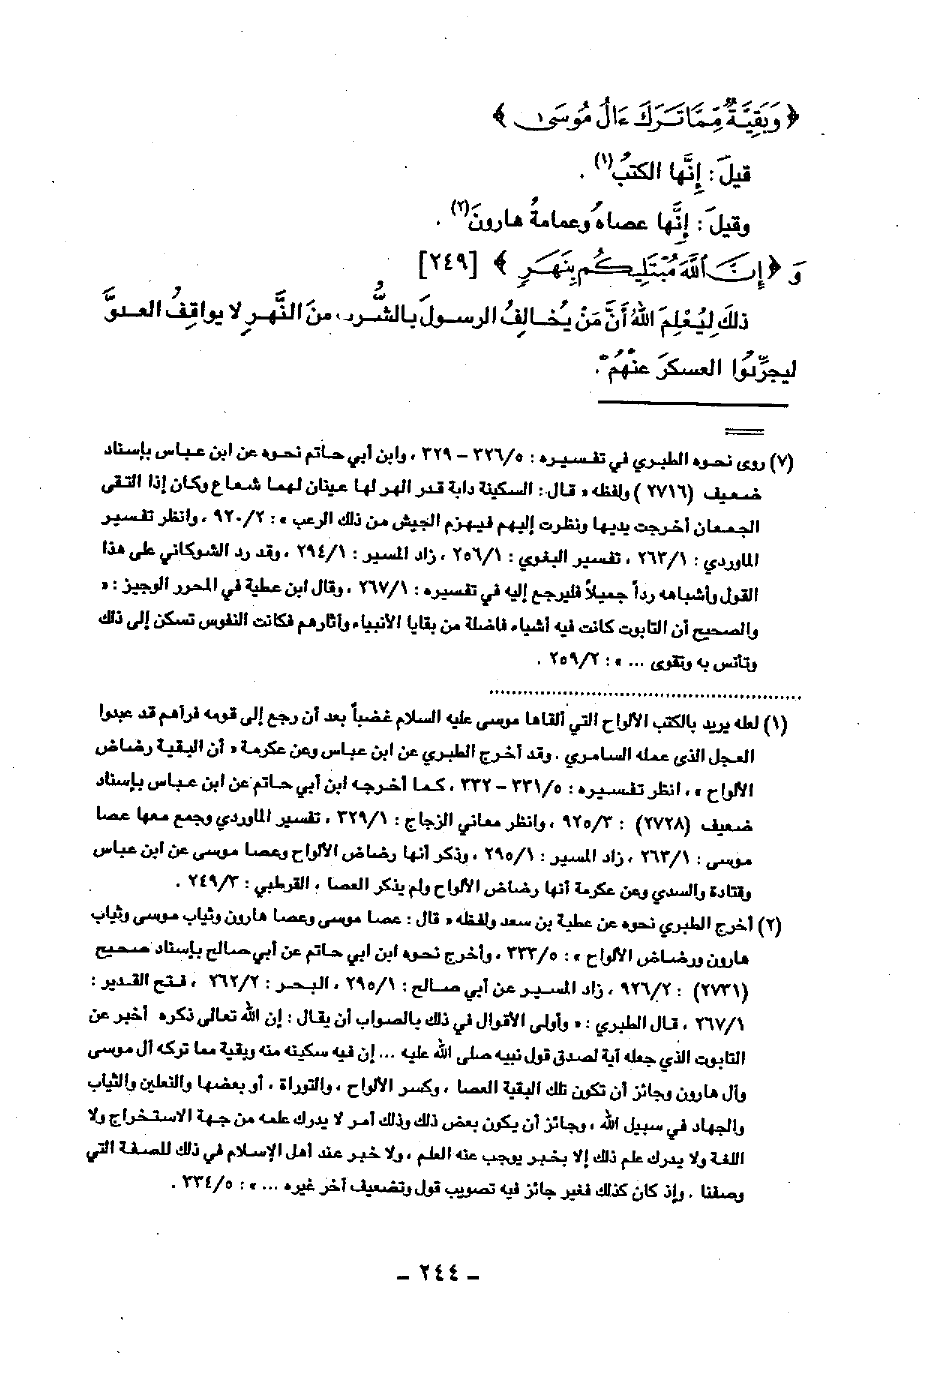 ﴿ وَبَقِيَّةٌ مِّمَّا تَرَكَ ءَالُ مُوسَىٰ ﴾
قيلَ : إنَّها الكتبُ(١) .
وقيلَ : إنَّها عصاهُ وعمامةُ هارونَ(٢) .
وَ ﴿ إِنَّ ٱللَّهَ مُبْتَلِيكُم بِنَهَرٍ ﴾ [٢٤٩]
ذلكَ لِيُعْلِمَ اللهُ أنَّ مَنْ يُخالِفُ الرسولَ بالشُّربِ منَ النَّهرِ لا يواقِفُ العدوَّ
ليجرِّدُوا العسكرَ عنْهُم .
(٧) روى نحوه الطبري في تفسيره : ٣٢٦/٥ – ٣٢٩ ، وابن أبي حاتم نحوه عن ابن عباس بإسناد
ضعيف (٢٧١٦) ولفظه « قال : السكينة دابة قدر الهر لها عينان لهما شعاع وكان إذا التقى
الجمعان أخرجت يديها ونظرت إليهم فيهزم الجيش من ذلك الرعب » : ٩٢٠/٢ ، وانظر تفسير
الماوردي : ٢٦٣/١ ، تفسير البغوي : ٢٥٦/١ ، زاد المسير : ٢٩٤/١ ، وقد رد الشوكاني على هذا
القول وأشباهه رداً جميلاً فليرجع إليه في تفسيره : ٢٦٧/١ ، وقال ابن عطية في المحرر الوجيز : «
والصحيح أن التابوت كانت فيه أشياء فاضلة من بقايا الأنبياء وآثارهم فكانت النفوس تسكن إلى ذلك
وتأنس به وتقوى ... » : ٢٥٩/٢ .
(١) لعله يريد بالكتب الألواح التي ألقاها موسى عليه السلام غضباً بعد أن رجع إلى قومه فرآهم قد عبدوا
العجل الذى عمله السامري . وقد أخرج الطبري عن ابن عباس وعن عكرمة « أن البقية رضاض
الألواح » ، انظر تفسيره : ٣٣١/٥ – ٣٣٢ ، كما أخرجه ابن أبي حاتم عن ابن عباس بإسناد
ضعيف (٢٧٢٨) : ٩٢٥/٣ ، وانظر معاني الزجاج : ٣٢٩/١ ، تفسير الماوردي وجمع معها عصا
موسى : ٢٦٣/١ ، زاد المسير : ٢٩٥/١ ، وذكر أنها رضاض الألواح وعصا موسى عن ابن عباس
وقتادة والسدي وعن عكرمة أنها رضاض الألواح ولم يذكر العصا ، القرطبي : ٢٤٩/٣ .
(٢) أخرج الطبري نحوه عن عطية بن سعد ولفظه « قال : عصا موسى وعصا هارون وثياب موسى وثياب
هارون ورضاض الألواح » : ٣٣٣/٥ ، وأخرج نحوه ابن ابي حاتم عن أبي صالح بإسناد صحيح
(٢٧٣١) : ٩٢٦/٢ ، زاد المسير عن أبي صالح : ٢٩٥/١ ، البحر : ٢٦٢/٢ ، فتح القدير :
٢٦٧/١ ، قال الطبري : « وأولى الأقوال في ذلك بالصواب أن يقال : إن الله تعالى ذكره أخبر عن
التابوت الذي جعله آية لصدق قول نبيه صلى الله عليه ... إن فيه سكينه منه وبقية مما تركه آل موسى
وآل هارون وجائز أن تكون تلك البقية العصا ، وكسر الألواح ، والتوراة ، أو بعضها والنعلين والثياب
والجهاد في سبيل الله ، وجائز أن يكون بعض ذلك وذلك أمر لا يدرك علمه من جهة الاستخراج ولا
اللغة ولا يدرك علم ذلك إلا بخبر يوجب عنه العلم ، ولا خبر عند أهل الإسلام في ذلك للصفة التي
وصفنا . وإذ كان كذلك فغير جائز فيه تصويب قول وتضعيف آخر غيره ... » : ٣٣٤/٥ .
– ٢٤٤ –